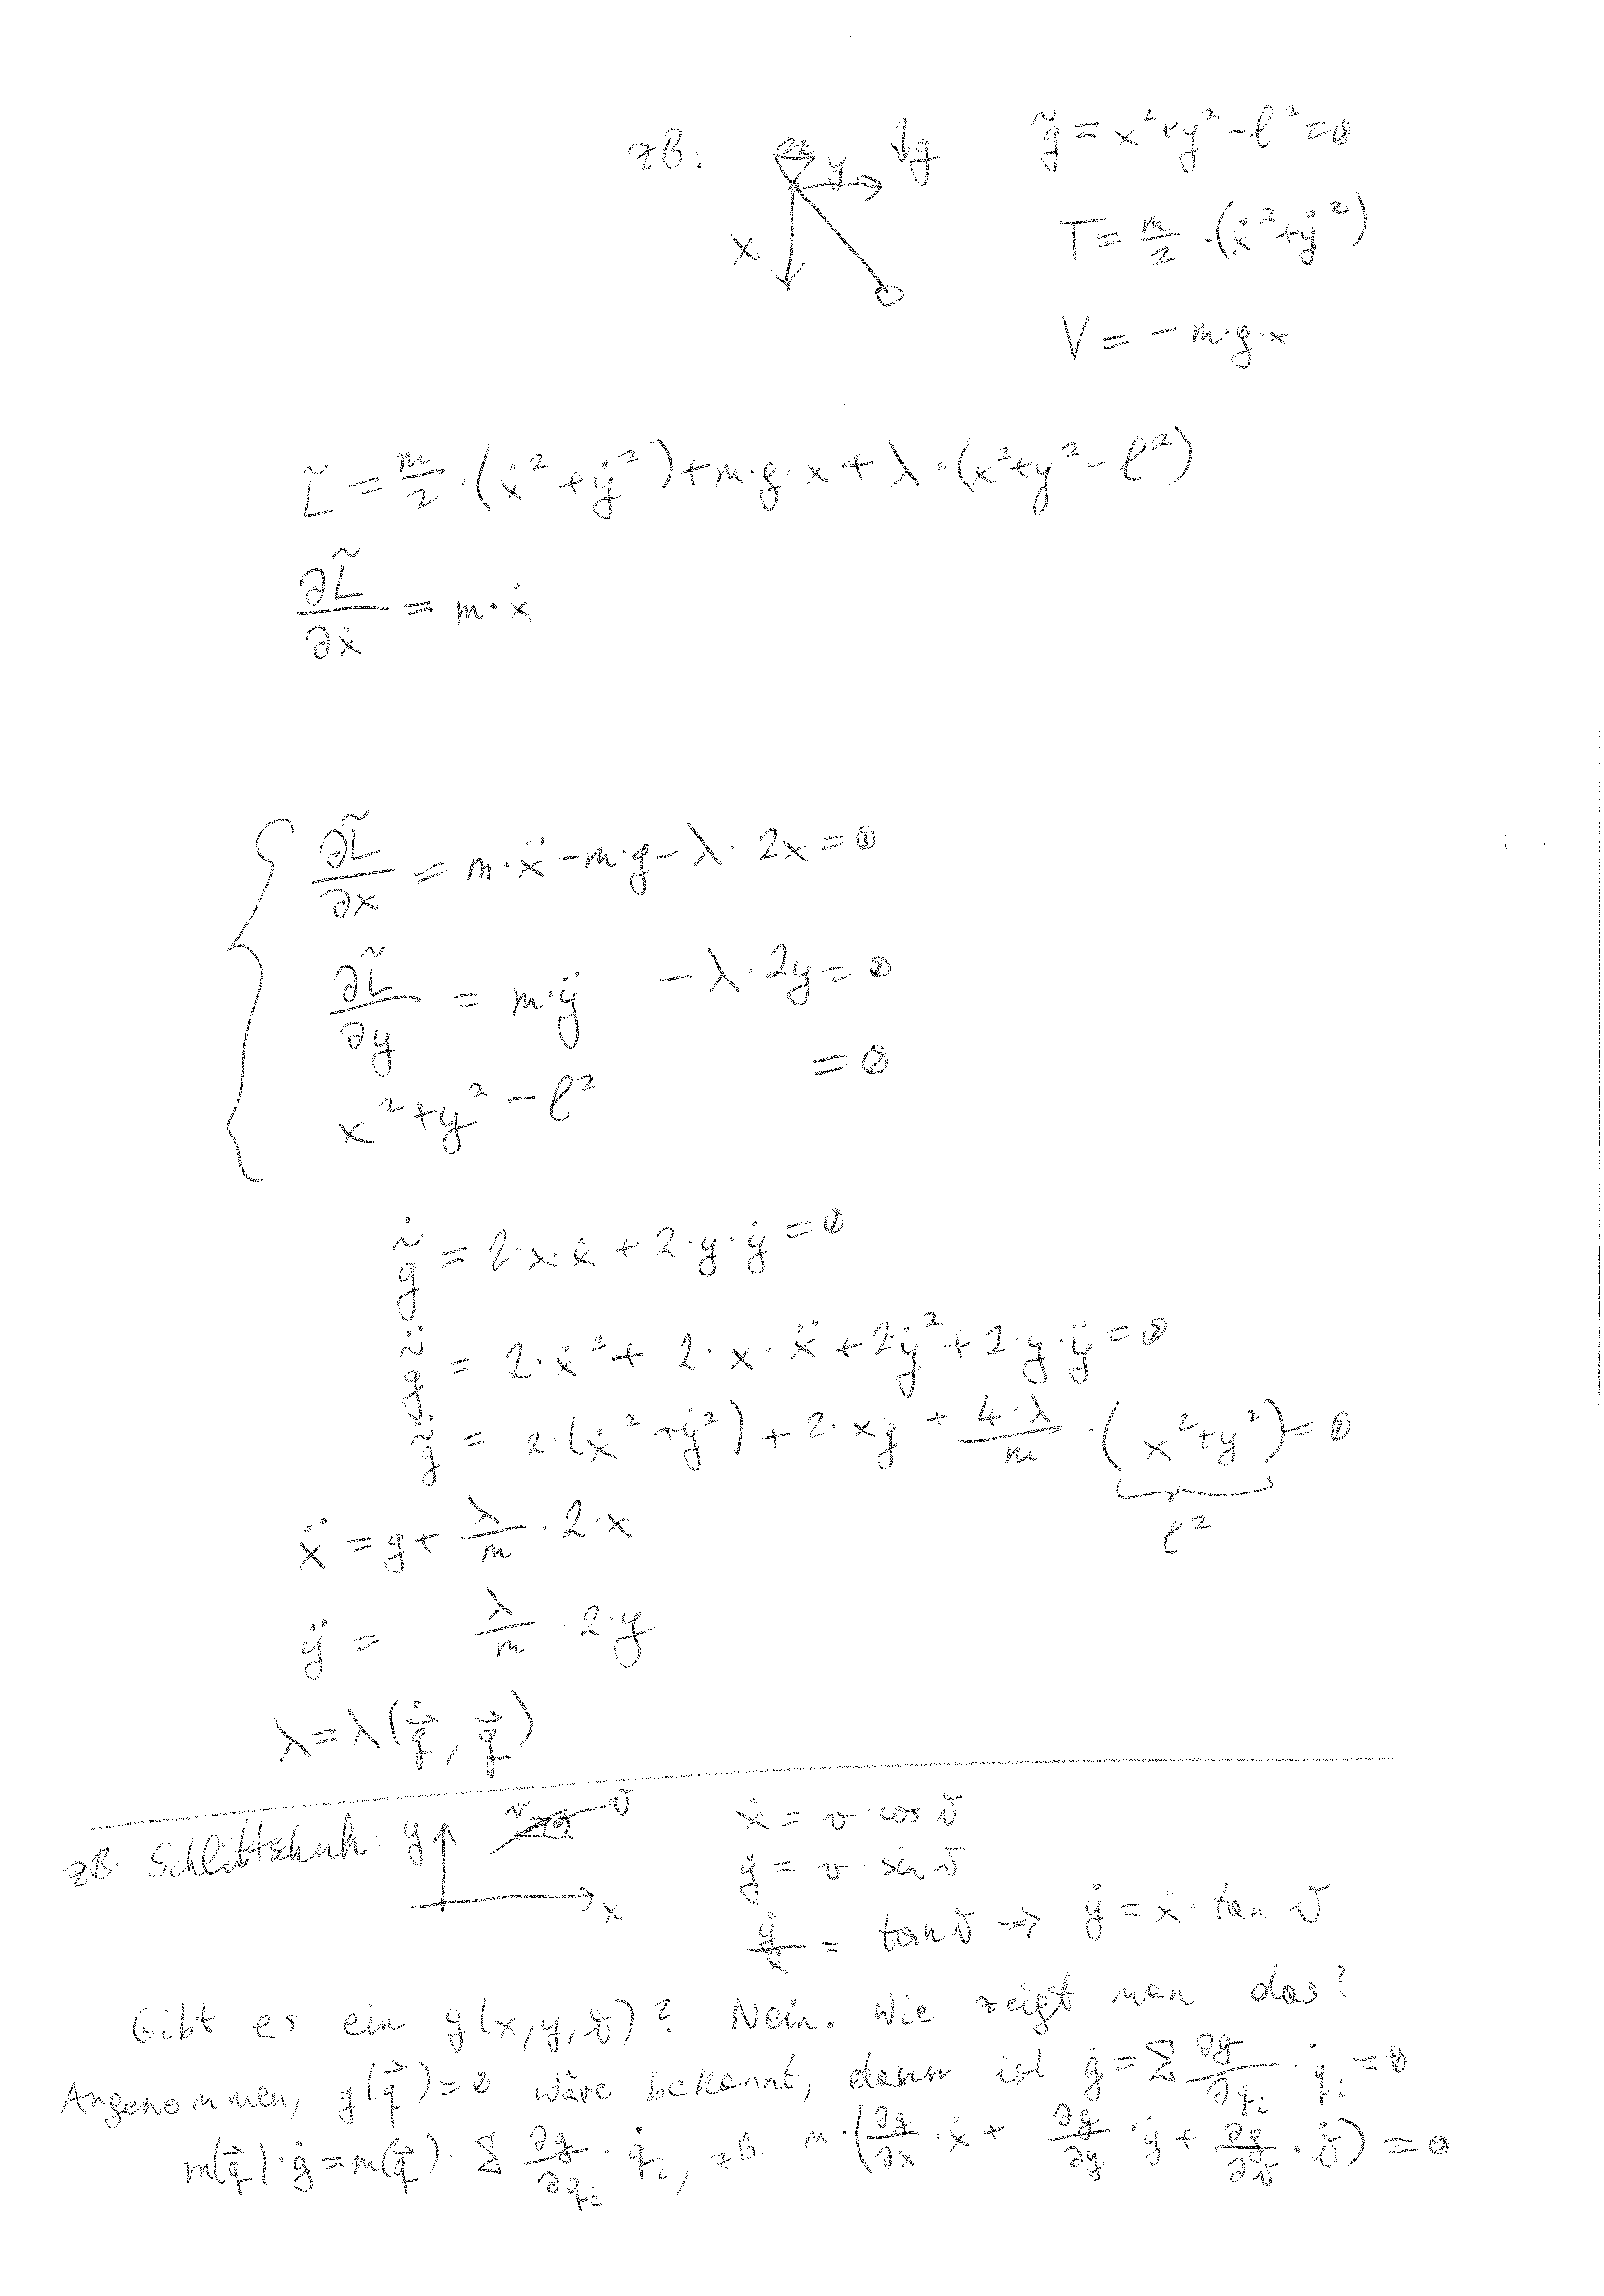 zB: y ↓g x
g̃ = x²+y²-ℓ²=0
T = m/2 ·(ẋ²+ẏ²)
V = -m·g·x
L̃ = m/2 ·(ẋ²+ẏ²)+m·g·x+λ·(x²+y²-ℓ²)
∂L̃/∂ẋ = m·ẋ
∂L̃/∂x = m·ẍ-m·g-λ·2x=0
∂L̃/∂y = m·ÿ -λ·2y=0
x²+y²-ℓ² =0
g̃̇ = 2·x·ẋ+2·y·ẏ=0
g̃̈ = 2·ẋ²+2·x·ẍ+2ẏ²+2·y·ÿ=0
g̃̈ = 2·(ẋ²+ẏ²)+2·xg+ 4·λ/m ·(x²+y²)=0
ℓ²
ẍ=g+ λ/m ·2·x
ÿ= λ/m ·2·y
λ=λ(q⃗̇, q⃗)
zB: Schlittschuh: y x v ϑ
ẋ = v·cos ϑ
ẏ = v·sin ϑ
ẏ/ẋ = tan ϑ ⇒ ẏ=ẋ·tan ϑ
Gibt es ein g(x,y,ϑ)? Nein. Wie zeigt man das?
Angenommen, g(q⃗)=0 wäre bekannt, dann ist ġ=Σ ∂g/∂qᵢ · q̇ᵢ=0
m(q⃗)·ġ=m(q⃗)·Σ ∂g/∂qᵢ · q̇ᵢ, zB. m·(∂g/∂x ·ẋ+ ∂g/∂y ·ẏ+ ∂g/∂ϑ ·ϑ̇)=0